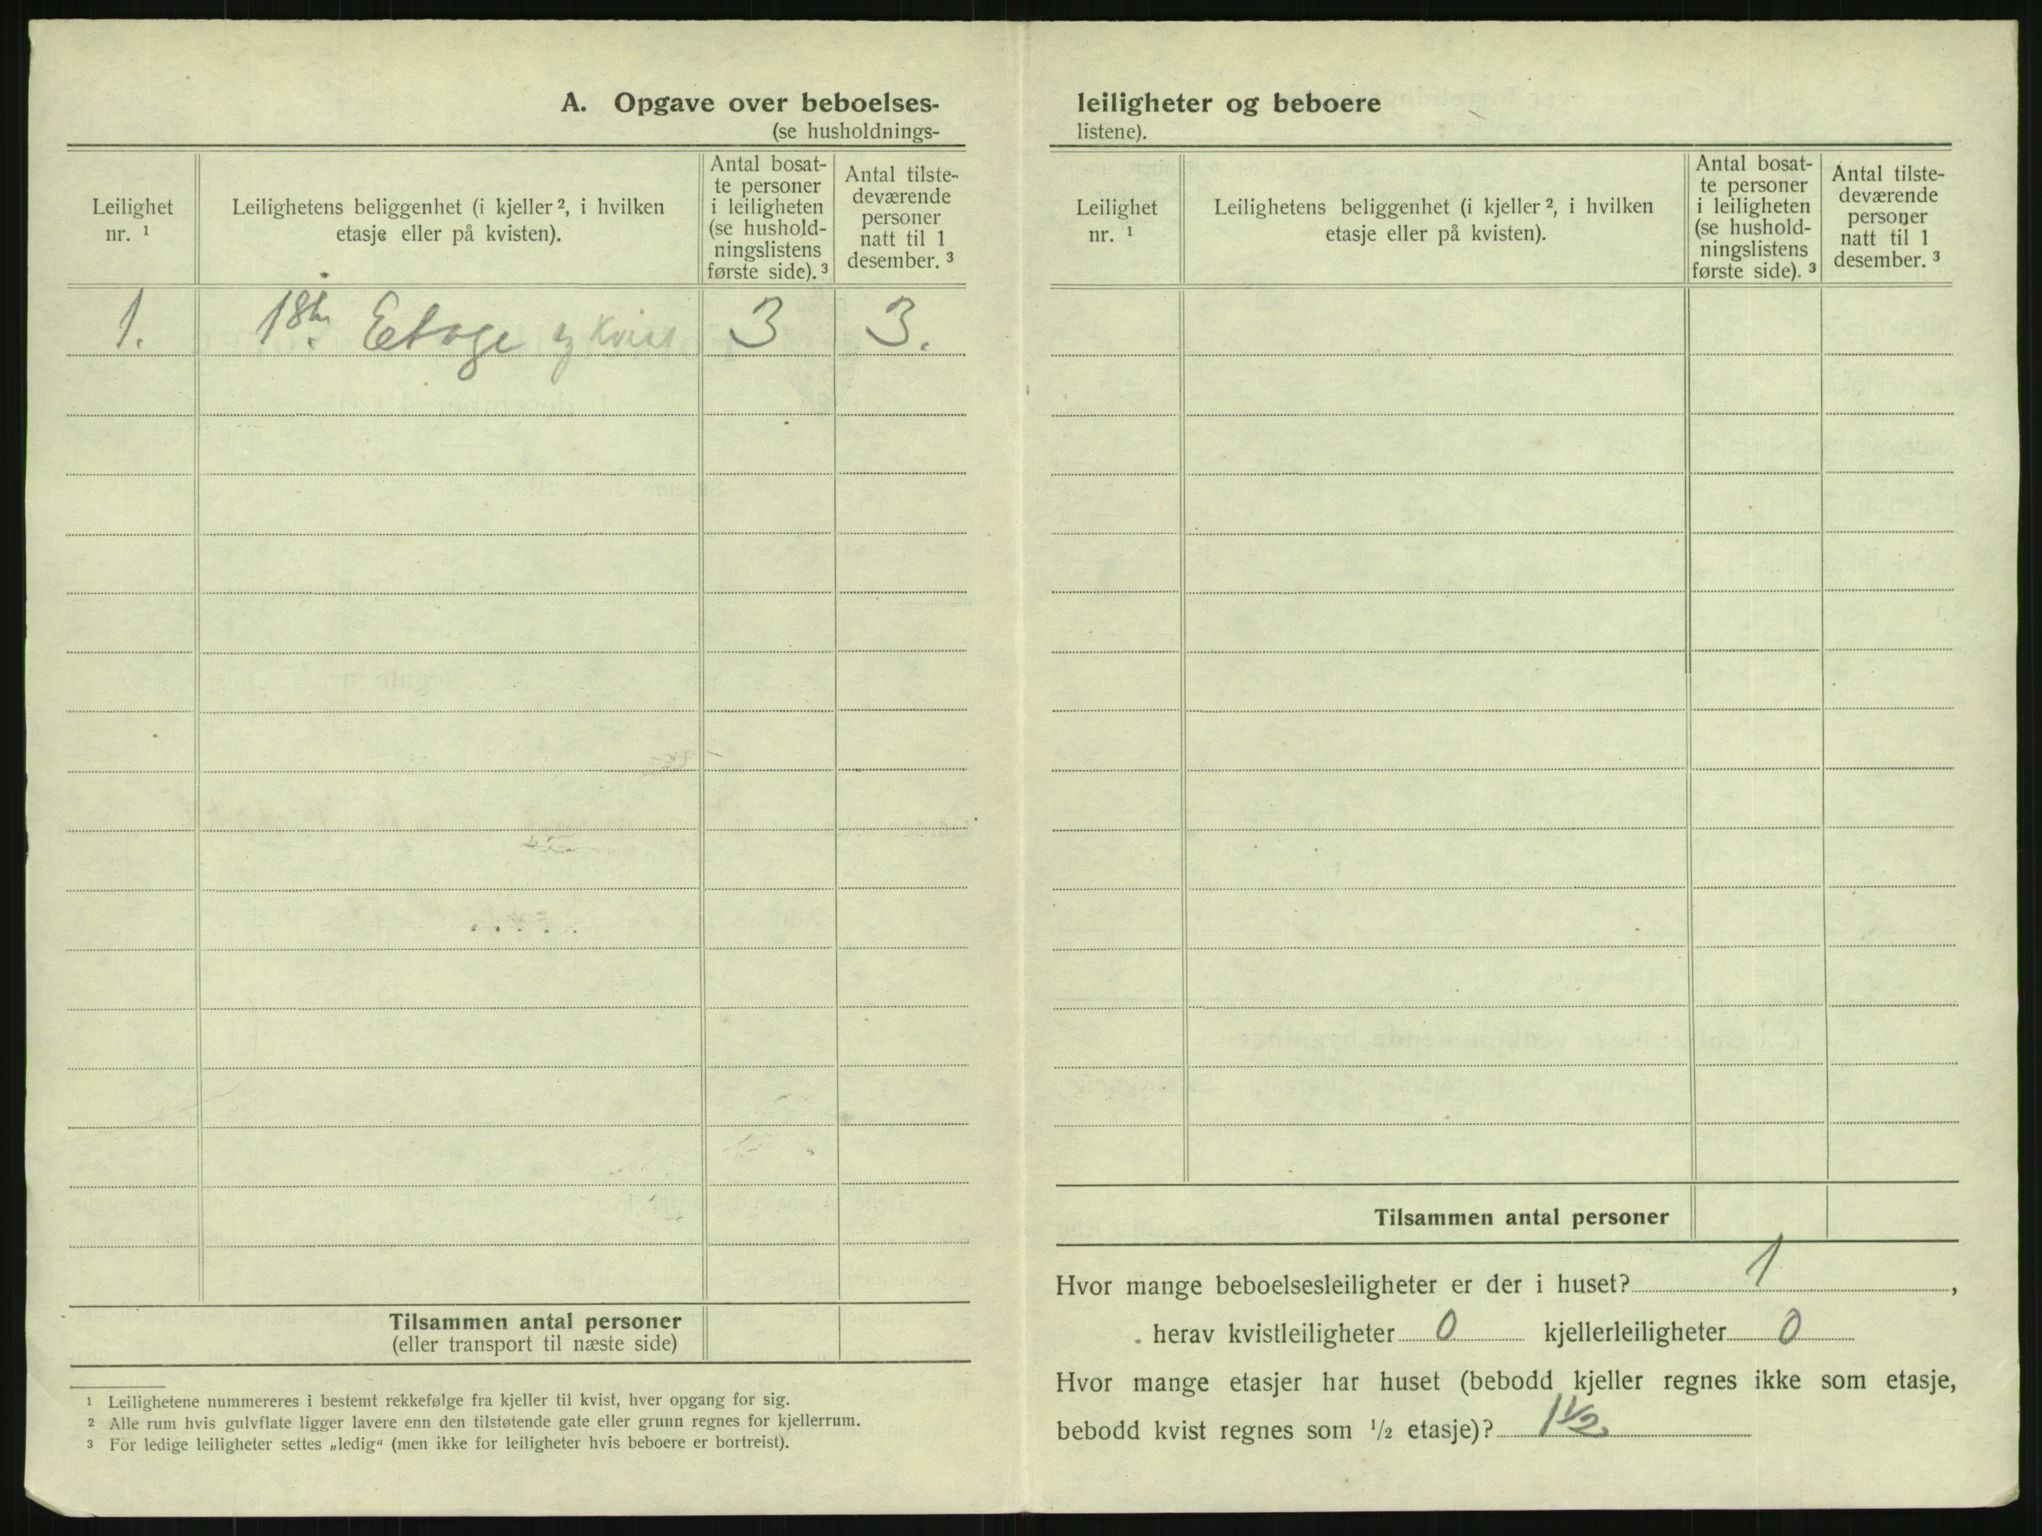 A. Opgave over beboelses-
(se husholdnings-
Leilighet
nr. ¹
Leilighetens beliggenhet (i kjeller ², i hvilken
etasje eller på kvisten).
Antal bosat-
te personer
i leiligheten
(se hushold-
ningslistens
første side). ³
Antal tilste-
deværende
personer
natt til 1
desember. ³
1. 1ste. Etage og Kvist 3 3.
Tilsammen antal personer
(eller transport til næste side)
¹ Leilighetene nummereres i bestemt rekkefølge fra kjeller til kvist, hver opgang for sig.
² Alle rum hvis gulvflate ligger lavere enn den tilstøtende gate eller grunn regnes for kjellerrum.
³ For ledige leiligheter settes „ledig“ (men ikke for leiligheter hvis beboere er bortreist).
leiligheter og beboere
listene).
Leilighet
nr. ¹
Leilighetens beliggenhet (i kjeller ², i hvilken
etasje eller på kvisten).
Antal bosat-
te personer
i leiligheten
(se hushold-
ningslistens
første side). ³
Antal tilste-
deværende
personer
natt til 1
desember. ³
Tilsammen antal personer
Hvor mange beboelsesleiligheter er der i huset? 1,
herav kvistleiligheter 0 kjellerleiligheter 0
Hvor mange etasjer har huset (bebodd kjeller regnes ikke som etasje,
bebodd kvist regnes som ½ etasje)? 1½